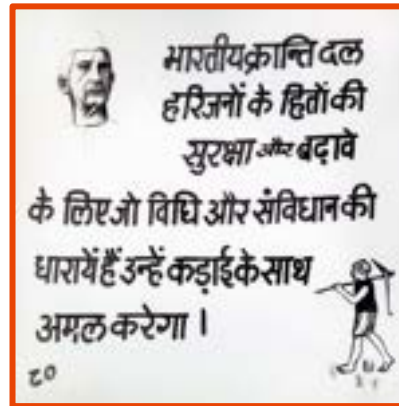 भारतीय क्रान्ति दल
हरिजनों के हितों की
सुरक्षा और बढ़ावे
के लिए जो विधि और संविधान की
धारायें हैं उन्हें कड़ाई के साथ
अमल करेगा ।
८०